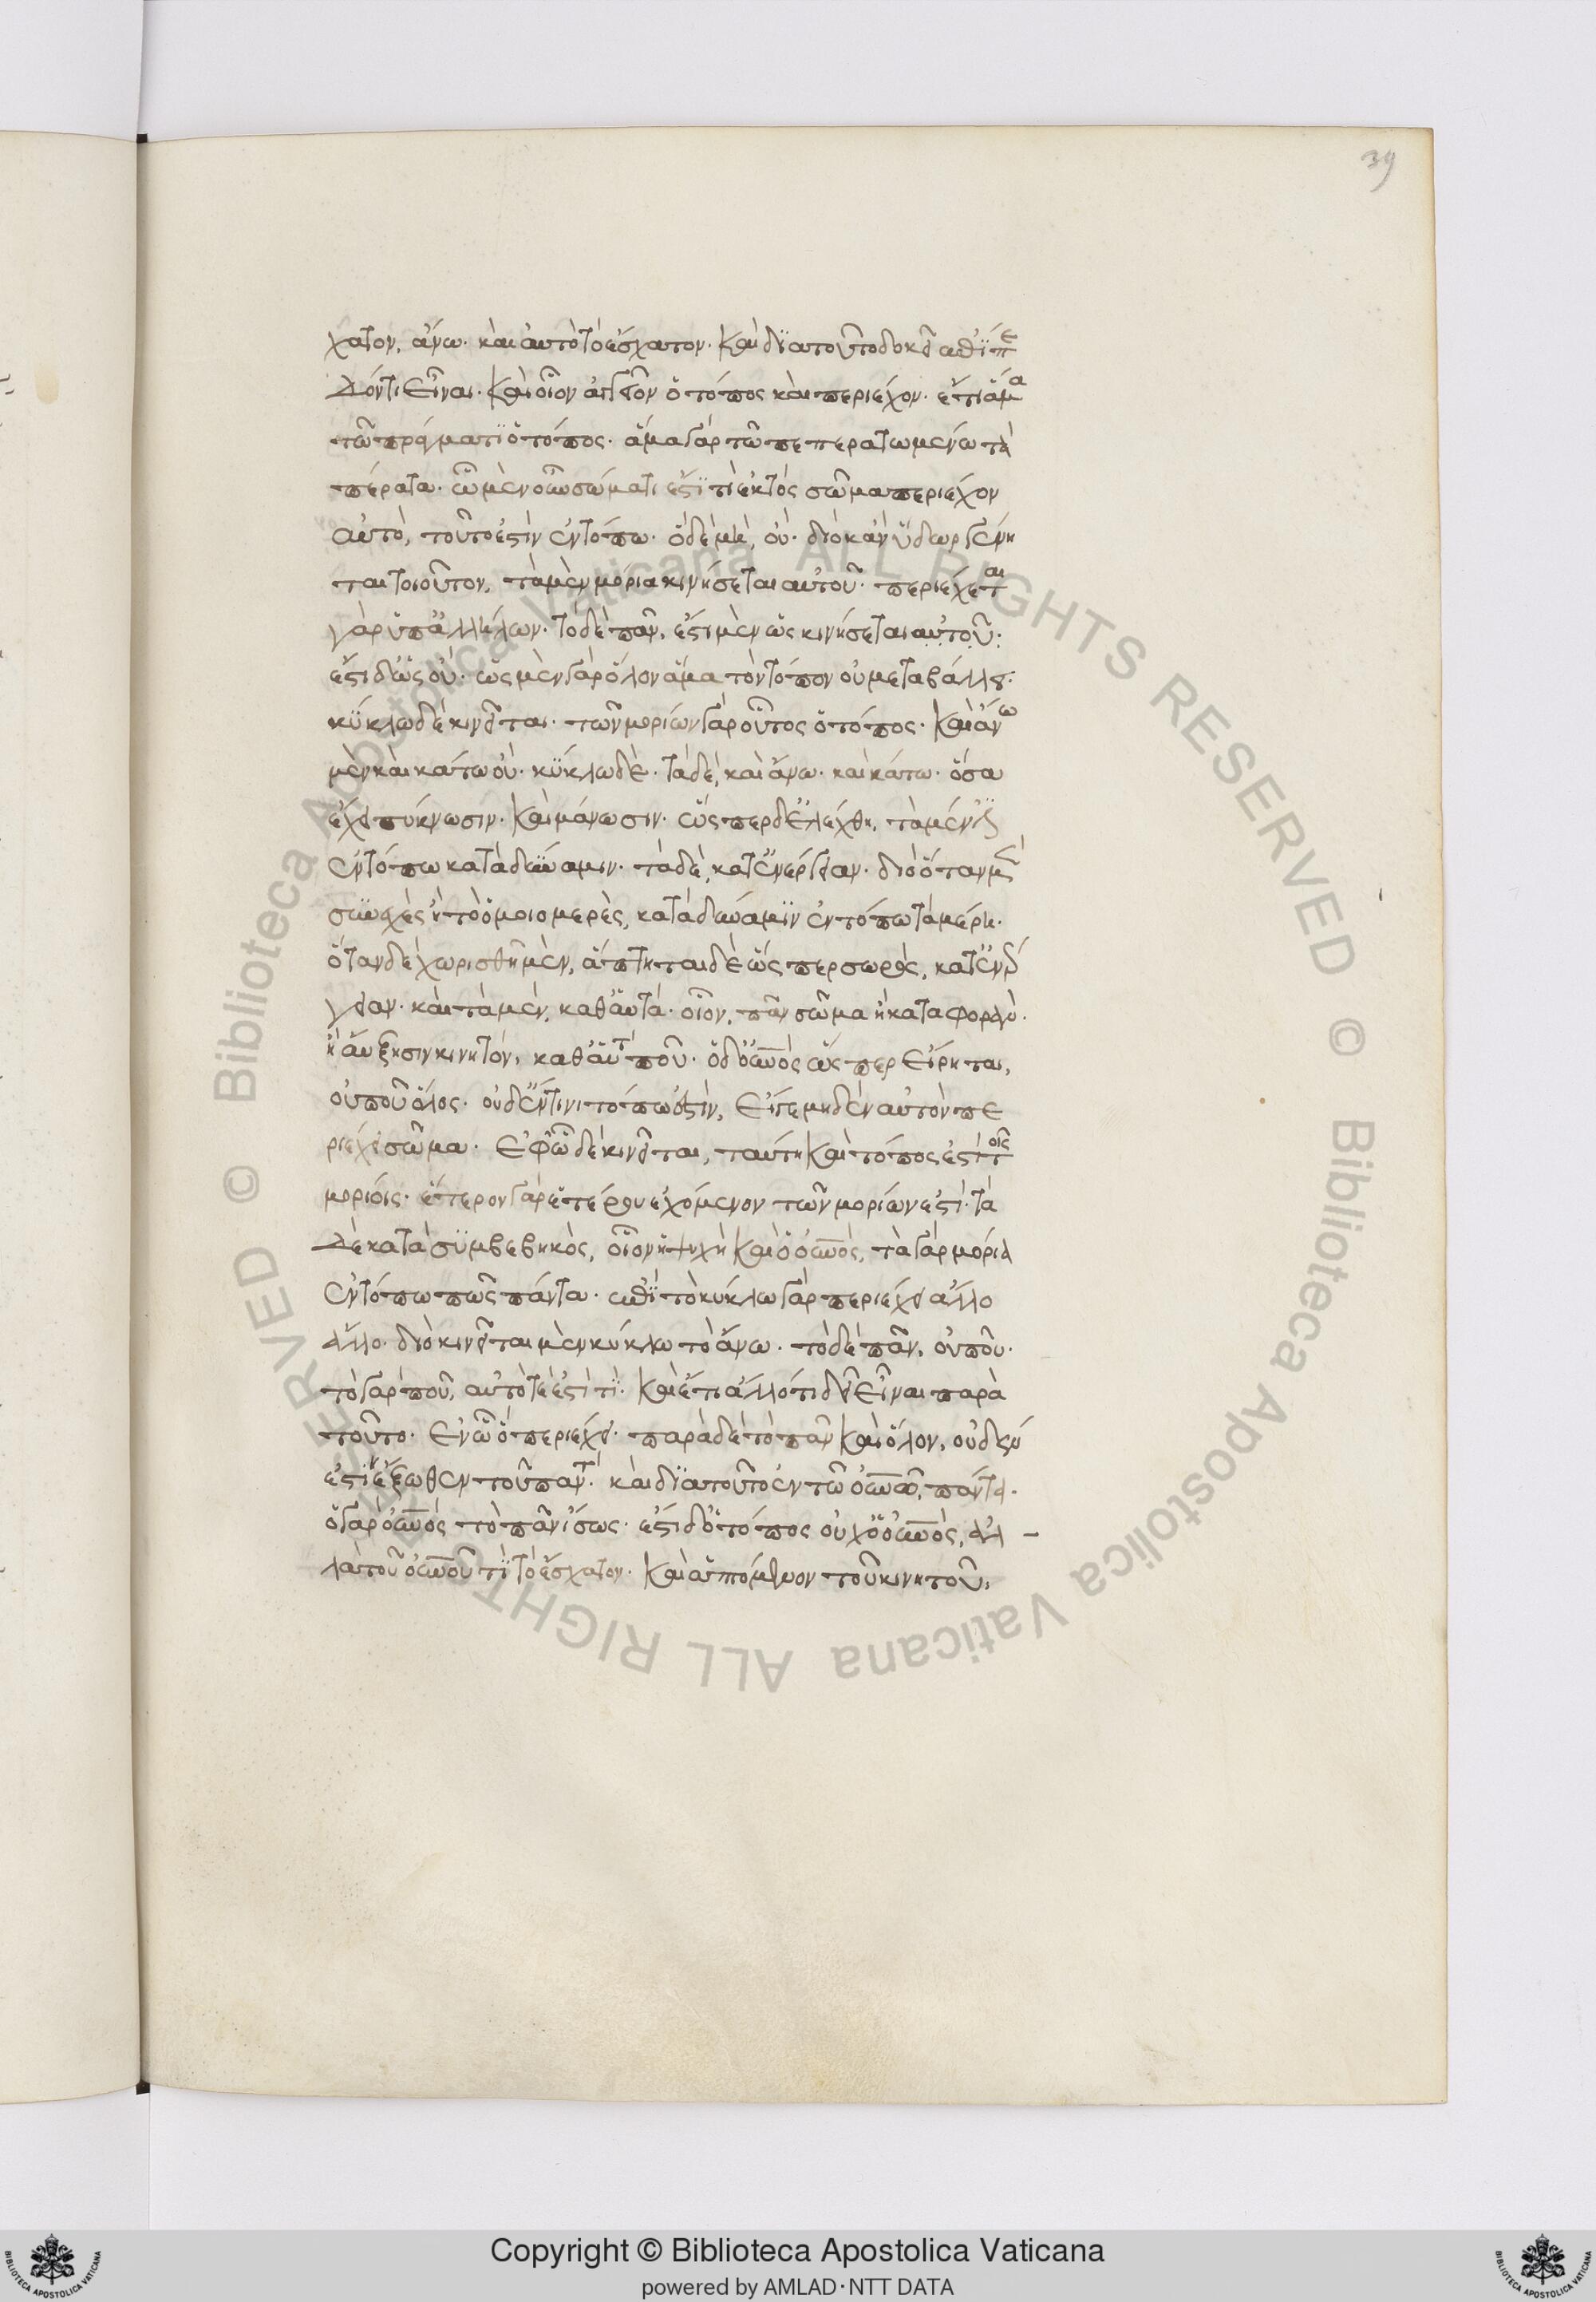 39
χατον, ἄνω· καὶ αὐτὸ τὸ ἔσχατον· καὶ διατοῦτο δοκεῖ ἐπί πε
δόν τι εἶναι· καὶ οἷον ἀγγεῖον ὁ τόπος καὶ περιέχον· ἔτι ἅμα
τῶ πράγματι ὁ τόπος· ἅμα γὰρ τῶ πεπερατωμένω τὰ
πέρατα· ὧ μὲν οὖν σώματι ἐστί τι ἐκτὸς σῶμα περιέχον
αὐτὸ, τοῦτο ἐστὶν ἐν τόπω· ὧ δὲ μὴ, οὔ· διὸ κἂν ὕδωρ γένη
ται τοιοῦτον, τὰ μὲν μόρια κινήσεται αὐτοῦ· περιέχεται
γὰρ ὑπ' ἀλλήλων· τὸ δὲ πᾶν, ἔστι μὲν ὡς κινήσεται αὐτοῦ·
ἔστι δ' ὡς οὔ· ὡς μὲν γὰρ ὅλον ἅμα τὸν τόπον οὐ μεταβάλλει·
κύκλω δὲ κινεῖται· τῶν μορίων γὰρ οὗτος ὁ τόπος· καὶ ἄνω
μὲν καὶ κάτω οὔ· κύκλω δὲ· τὰ δὲ, καὶ ἄνω· καὶ κάτω· ὅσα
ἔχει πύκνωσιν· καὶ μάνωσιν· ὥς περ δ' ἐλέχθη, τὰ μέν ἐστιν
ἐν τόπω κατὰ δύναμιν· τὰ δὲ, κατ' ἐνέργειαν· διὸ ὅταν μὲν
συνεχὲς ἦ τὸ ὁμοιομερὲς, κατὰ δύναμιν ἐν τόπω τὰ μέρη·
ὅταν δὲ χωρισθῆ μὲν, ἅπτηται δὲ ὥς περ σωρὸς, κατ' ἐνέρ
γειαν· καὶ τὰ μὲν, καθ' αὑτά· οἷον, πᾶν σῶμα ἢ κατα φορὰν·
ἢ αὔξησιν κινητόν, καθ' αὑτό που· ὁ δ' οὐνος ὥς περ εἴρηται,
οὐ που ὅλος· οὐδ' ἔν τινι τόπω ἐστὶν, εἴ γε μηδὲν αὐτὸν πε
ριέχει σῶμα· ἐφ' ὧ δὲ κινεῖται, ταύτη καὶ τόπος ἐστὶ τοῖς
μορίοις· ἕτερον γὰρ ἑτέρου ἐχόμενον τῶν μορίων ἐστί· τὰ
δὲ κατὰ συμβεβηκὸς, οἷον ἡ ψυχὴ καὶ ὁ οὐνος, τὰ γὰρ μόρια
ἐν τόπω πως πάντα· ἐπὶ τὸ κύκλω γὰρ περιέχει ἄλλο
ἄλλο· διὸ κινεῖται μὲν κύκλω τὸ ἄνω· τὸ δὲ πᾶν, οὔ που·
τὸ γάρ που, αὐτὸ τέ ἐστί τι· καὶ ἔτι ἄλλό τι δεῖ εἶναι παρὰ
τοῦτο· ἐν ὧ ὃ περιέχει· παρὰ δὲ τὸ πᾶν καὶ ὅλον, οὐδέν
ἐστιν ἔξωθεν τοῦ παντός· καὶ διατοῦτο ἐν τῶ οὐνω, πάντα·
ὁ γὰρ οὐνος τὸ πᾶν ἴσως· ἔστι δ' ὁ τόπος οὐχ ὁ οὐνος, ἀλ
λὰ τοῦ οὐνου τὶ τὸ ἔσχατον· καὶ ἁπτόμενον τοῦ κινητοῦ,
Copyright © Biblioteca Apostolica Vaticana
powered by AMLAD·NTT DATA
© Biblioteca Apostolica Vaticana ALL RIGHTS RESERVED © Biblioteca Apostolica Vaticana ALL RIGHTS RESERVED